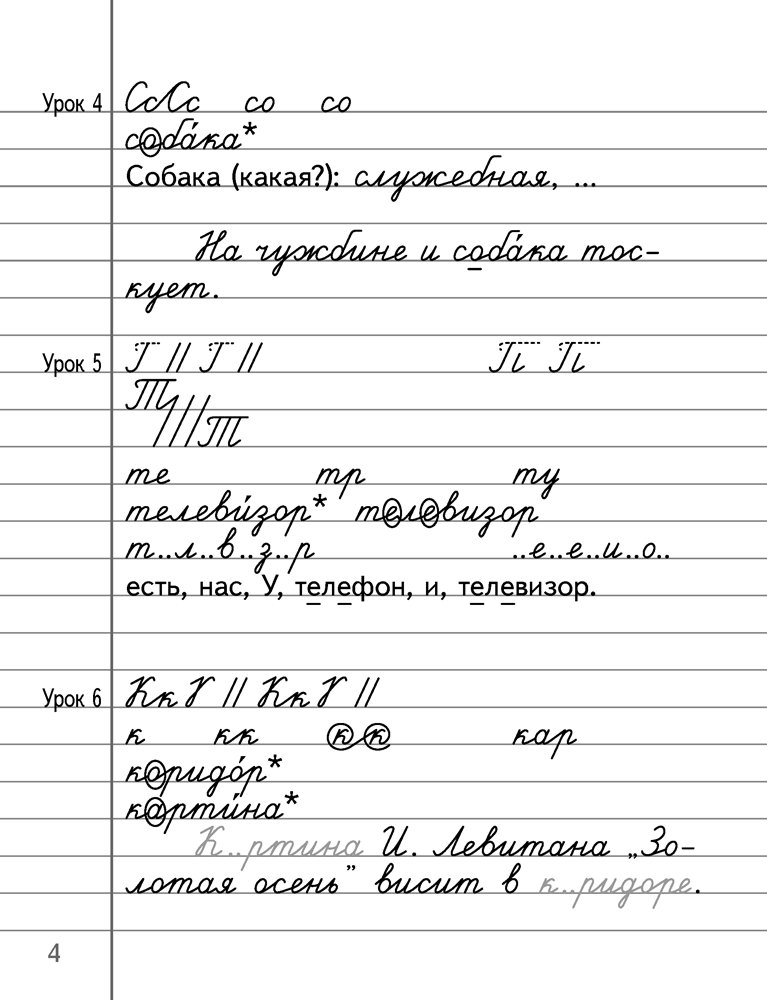 Урок 4 СсСс со со
собáка*
Собака (какая?): служебная, ...
На чужбине и собáка тос-
кует.
Урок 5 Г // Г // П П
Т
/// Т
те тр ту
телевúзор* телевизор
т..л..в..з..р ..е..е..и..о..
есть, нас, У, телефон, и, телевизор.
Урок 6 Кк К // Кк К //
к кк к к кар
коридóр*
картúна*
К..ртина И. Левитана „Зо-
лотая осень” висит в к..ридоре.
4